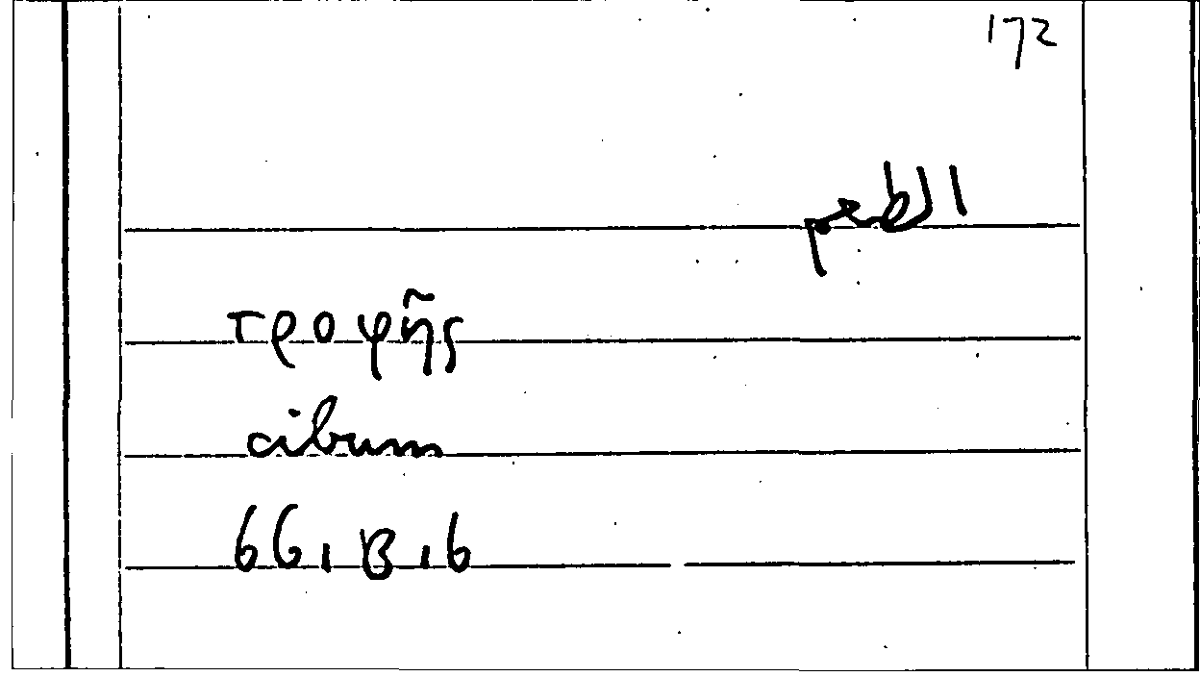 172
الطعم
τροφῆς
cibum
66, B, 6